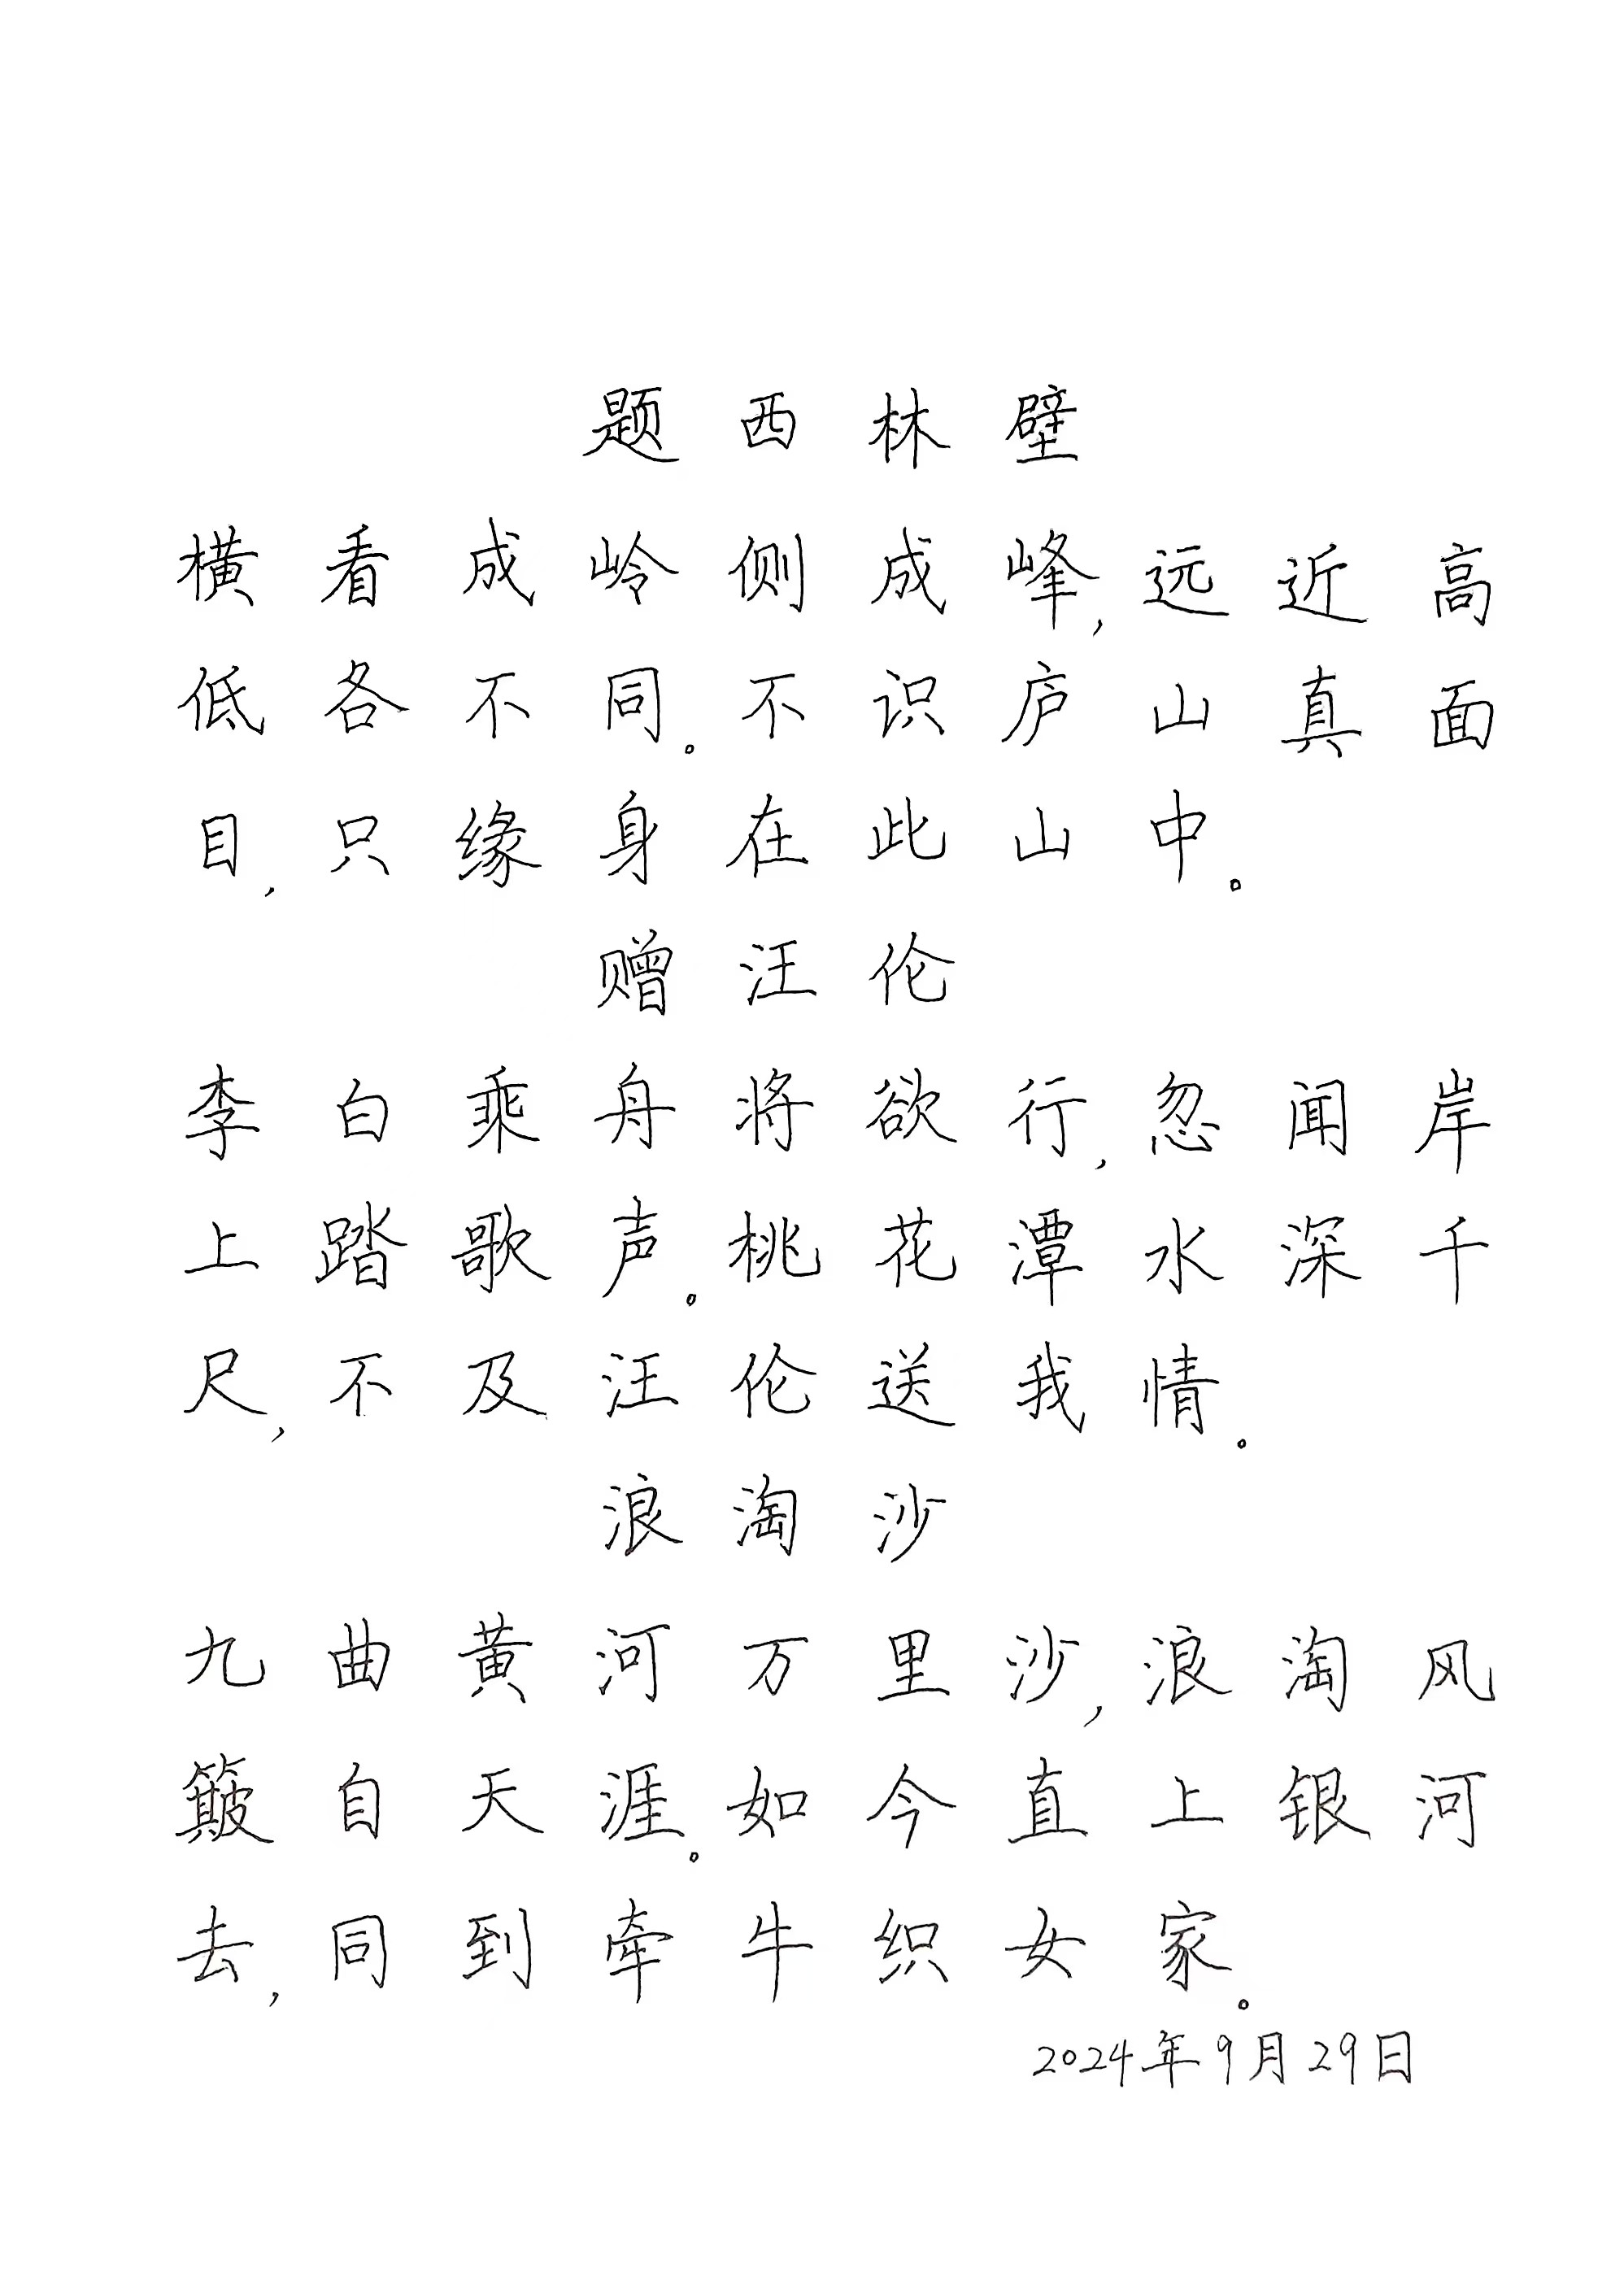 题西林壁
横看成岭侧成峰,远近高
低各不同。不识庐山真面
目,只缘身在此山中。
赠汪伦
李白乘舟将欲行,忽闻岸
上踏歌声。桃花潭水深千
尺,不及汪伦送我情。
浪淘沙
九曲黄河万里沙,浪淘风
簸自天涯。如今直上银河
去,同到牵牛织女家。
2024年9月29日